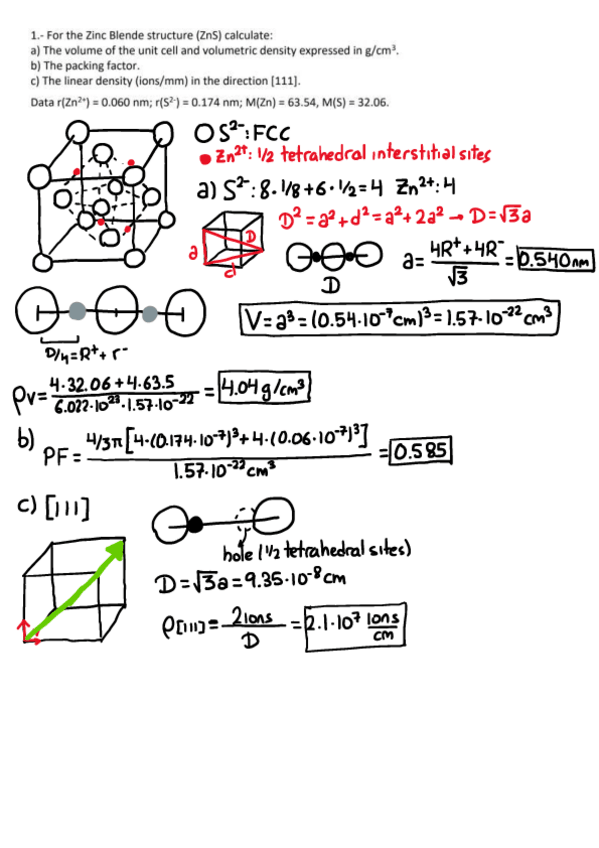 1.- For the Zinc Blende structure (ZnS) calculate:
a) The volume of the unit cell and volumetric density expressed in g/cm³.
b) The packing factor.
c) The linear density (ions/mm) in the direction [111].
Data r(Zn²⁺) = 0.060 nm; r(S²⁻) = 0.174 nm; M(Zn) = 63.54, M(S) = 32.06.
O S²⁻: FCC
● Zn²⁺: 1/2 tetrahedral interstitial sites
a) S²⁻: 8·1/8+6·1/2=4 Zn²⁺: 4
D²=a²+d²=a²+2a² → D=√3a
a
D
d
D
a= 4R⁺+4R⁻ / √3 = 0.540nm
V=a³=(0.54·10⁻⁷cm)³=1.57·10⁻²² cm³
D/4=R⁺+r⁻
ρv= 4·32.06+4·63.5 / 6.022·10²³·1.57·10⁻²² = 4.04 g/cm³
b) PF= 4/3π[4·(0.174·10⁻⁷)³+4·(0.06·10⁻⁷)³] / 1.57·10⁻²²cm³ =0.585
c) [111]
hole (1/2 tetrahedral sites)
D=√3a=9.35·10⁻⁸cm
ρ[111]= 2ions / D = 2.1·10⁷ ions/cm